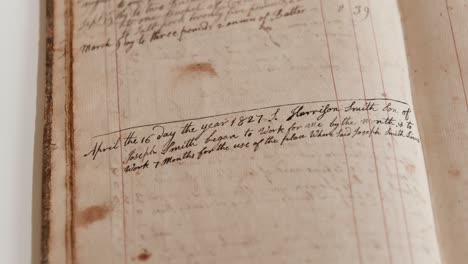 Sept 15 to one
to Salt pork twenty five pounds
March 9 by to three pounds 2 ounces of Butter 0 39
April the 16 Day the year 1827 J. Harrison Smith Son of
Joseph Smith began to Work for me by the month, is to
Work 7 Months for the use of the place Where Said Joseph Smith Lives